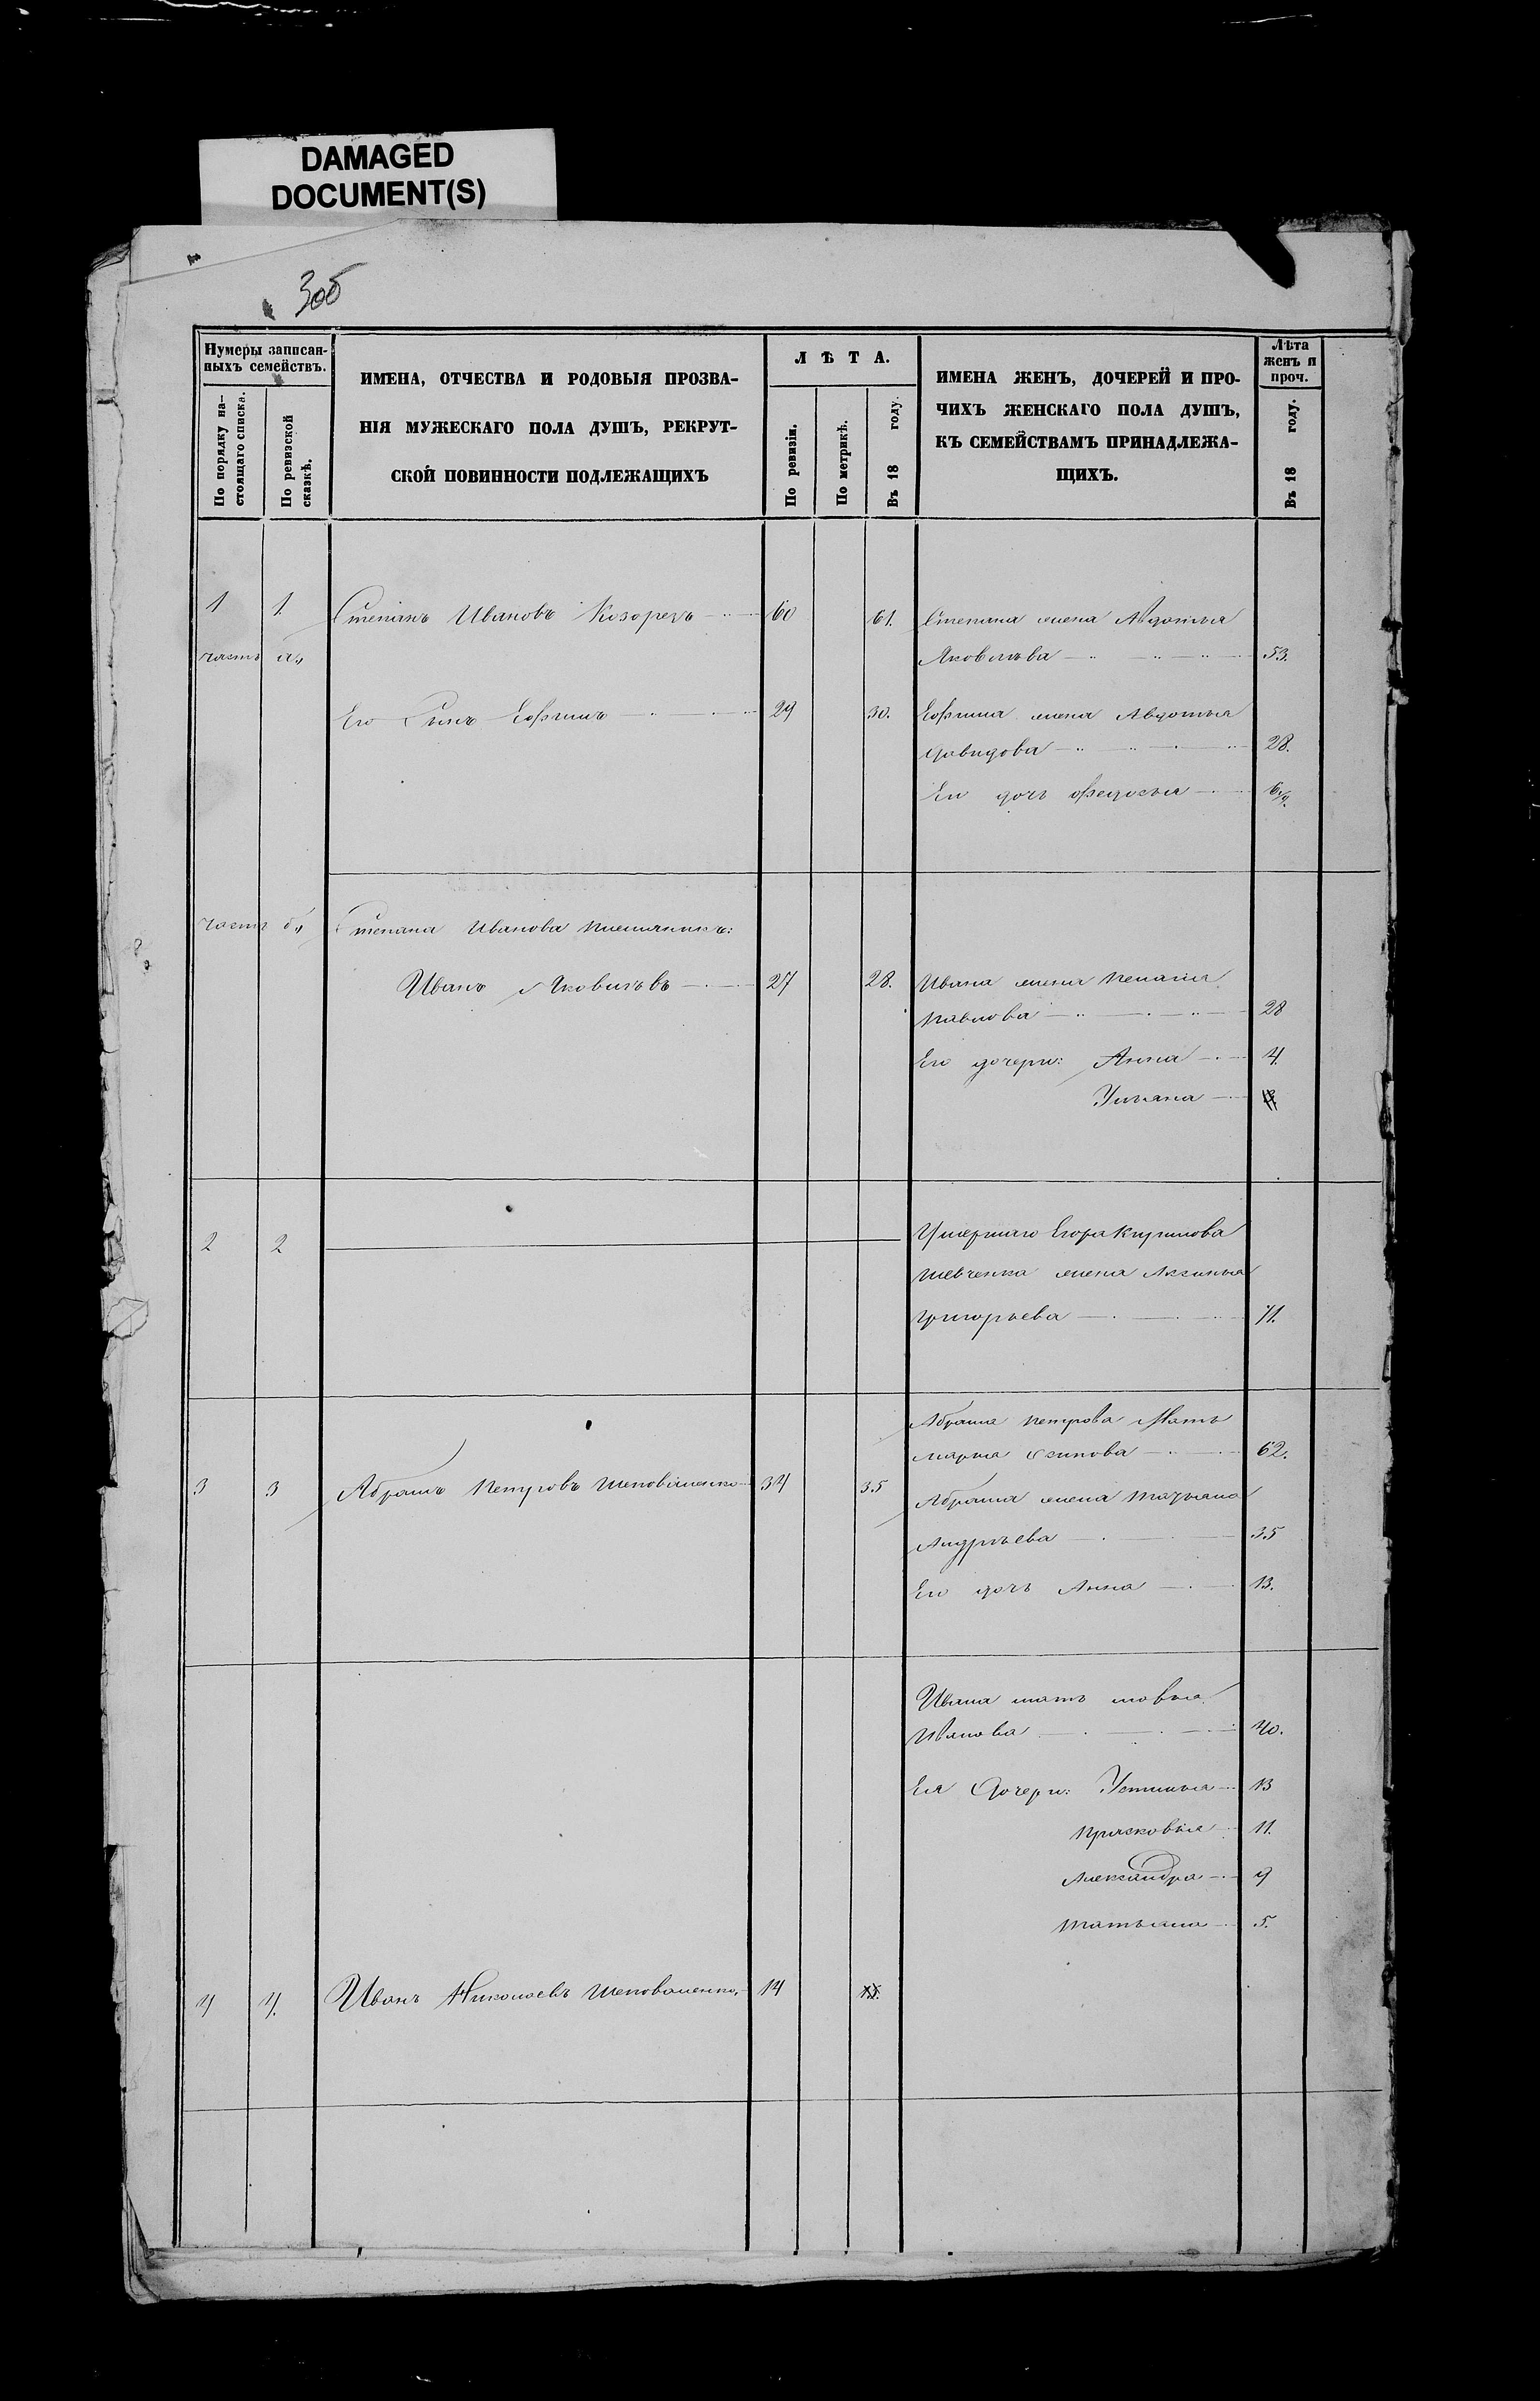 DAMAGED
DOCUMENT(S)
3об
Нумеры записан-
ныхъ семействъ.
По порядку на-
стоящаго списка.
По ревизской
сказкѣ.
ИМЕНА, ОТЧЕСТВА И РОДОВЫЯ ПРОЗВА-
НІЯ МУЖЕСКАГО ПОЛА ДУШЪ, РЕКРУТ-
СКОЙ ПОВИННОСТИ ПОДЛЕЖАЩИХЪ
ЛѢТА.
По ревизіи.
По метрикѣ.
Въ 18 году.
ИМЕНА ЖЕНЪ, ДОЧЕРЕЙ И ПРО-
ЧИХЪ ЖЕНСКАГО ПОЛА ДУШЪ,
КЪ СЕМЕЙСТВАМЪ ПРИНАДЛЕЖА-
ЩИХЪ.
Лѣта
женъ и
проч.
Въ 18 году.
1 1. Степанъ Ивановъ Козорезъ 60 61. Степана жена Авдотья
часть а,, Яковлѣва 53.
Его Сынъ Ефимъ 29 30. Ефима жена Авдотья
Давидова 28.
Его дочь Федосья
часть б,, Степана Иванова племянникъ:
Иванъ Яковлѣвъ 27 28. Ивана жена Пелагія
Павлова 28
Его дочери: Анна 4.
Ульяна
2 2 Умершаго Егора Кирилова
Шевченка жена Аксинья
Григорьева 71.
Абрама Петрова Мать
Марѳа Осипова 62.
3 3 Абрамъ Петровъ Шеповаленко 34 35 Абрама жена Татьяна
Андрѣева 35
Его дочь Анна 13.
Ивана мать Софья
Иванова 40.
Ея Дочери: Устинья 13
Прасковья 11.
Александра 9
Татьяна 5.
4 4. Иванъ Николаевъ Шеповаленко, 14